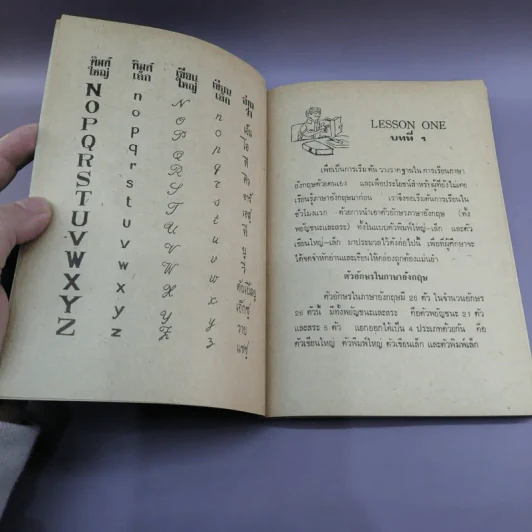 พิมพ์ใหญ่ พิมพ์เล็ก เขียนใหญ่ เขียนเล็ก อ่านว่า
N n N n เอ็น
O o O o โอ
P p P p พี
Q q Q q คิว
R r R r อาร์
S s S s เอส
T t T t ที
U u U u ยู
V v V v วี
W w W w ดับเบิลยู
X x X x เอ็กซ์
Y y Y y วาย
Z z Z z แซด
LESSON ONE
บทที่ ๑
เพื่อเป็นการเริ่มต้น วางรากฐานใน การเรียนภาษา
อังกฤษด้วยตนเอง และเพื่อประโยชน์สำหรับผู้ที่ยังไม่เคย
เรียนรู้ภาษาอังกฤษมาก่อน เราจึงขอเริ่มต้นการเรียนใน
ชั่วโมงแรก ด้วยการนำเอาตัวอักษรภาษาอังกฤษ (ทั้ง
พยัญชนะและสระ) ทั้งในแบบตัวพิมพ์ใหญ่–เล็ก และตัว
เขียนใหญ่–เล็ก มาประมวลไว้ดังต่อไปนี้ เพื่อที่ผู้ศึกษาจะ
ได้จดจำหัดอ่านและเขียนให้คล่องถูกต้องแม่นยำ
ตัวอักษรในภาษาอังกฤษ
ตัวอักษรในภาษาอังกฤษมี 26 ตัว ในจำนวนอักษร
26 ตัวนี้ มีทั้งพยัญชนะและสระ คือตัวพยัญชนะ 21 ตัว
และสระ 5 ตัว แยกออกได้เป็น 4 ประเภทด้วยกัน คือ
ตัวเขียนใหญ่ ตัวพิมพ์ใหญ่ ตัวเขียนเล็ก และตัวพิมพ์เล็ก